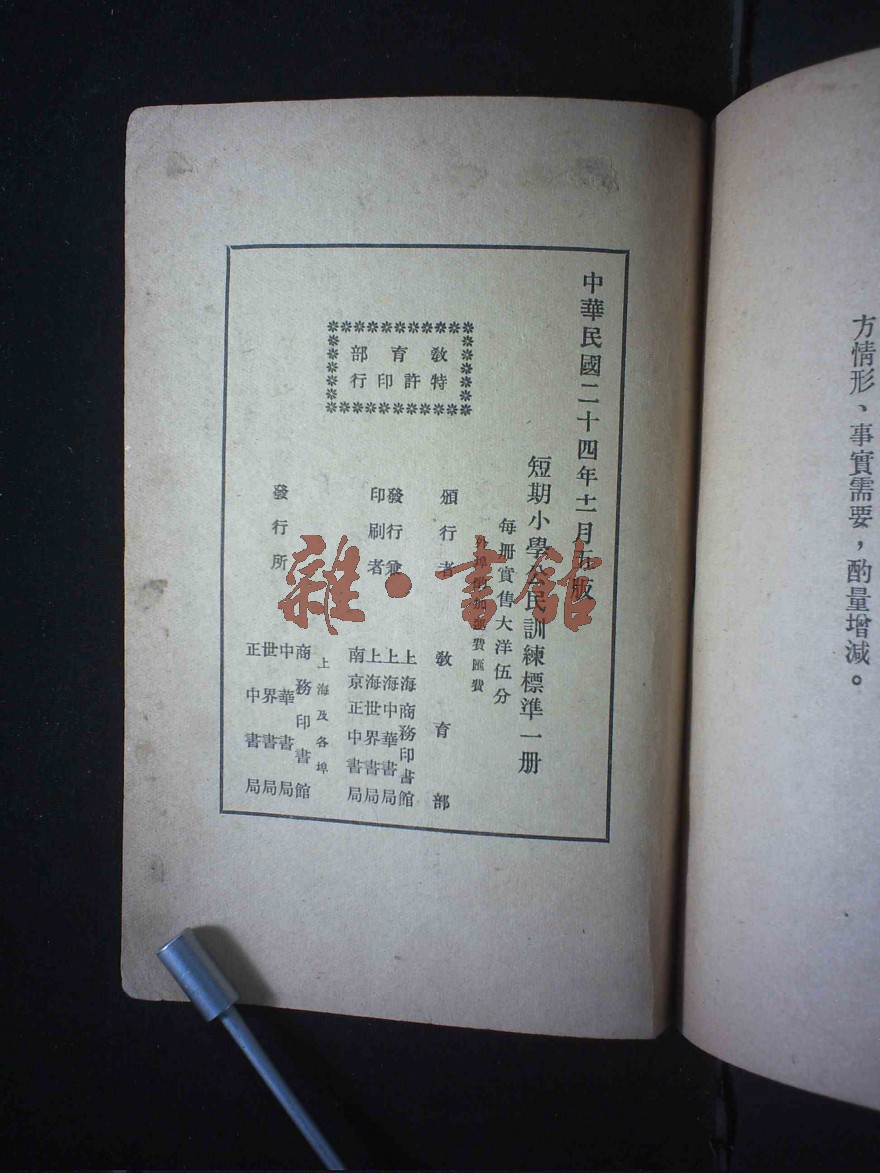 方情形、事實需要，酌量增減。
中華民國二十四年十一月五版
短期小學公民訓練標準一册
每册實售大洋伍分
外埠酌加運費匯費
教育部
特許印行
頒行者 教育部
發行兼
印刷者
上海商務印書館
上海中華書局
上海世界書局
南京正中書局
發行所
上海及各埠
商務印書館
中華書局
世界書局
正中書局
雜·書館